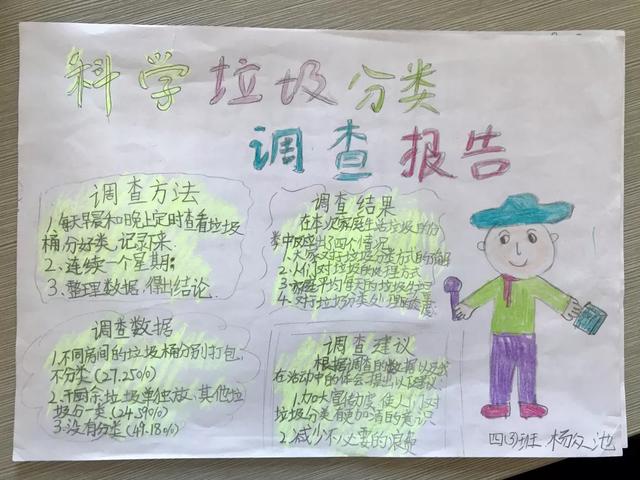 科学垃圾分类
调查报告
调查方法
1、每天早晨和晚上定时查看垃圾
桶分好类、记录下来.
2、连续一个星期;
3、整理数据、得出结论.
调查结果
在本次家庭生活垃圾
类中反四个情况
1、大家对垃圾分类方式的
2、人们对垃圾的处理方式
3、平均每天的垃圾
4、对垃圾分类处理的
调查数据
1.不同房间的垃圾桶分别打包,
不分类(27.250%)
2、干厨余垃圾单独放、其他垃
圾分一类(24.59%)
3.没有分类(49.18%)
调查建议
根据调查的数据以及我
在活动中的体会提出以下建议:
1.加大宣传力度、使人们对
垃圾分类有更加清的意识
2、减少不必要的浪费
四(3)班 杨久池